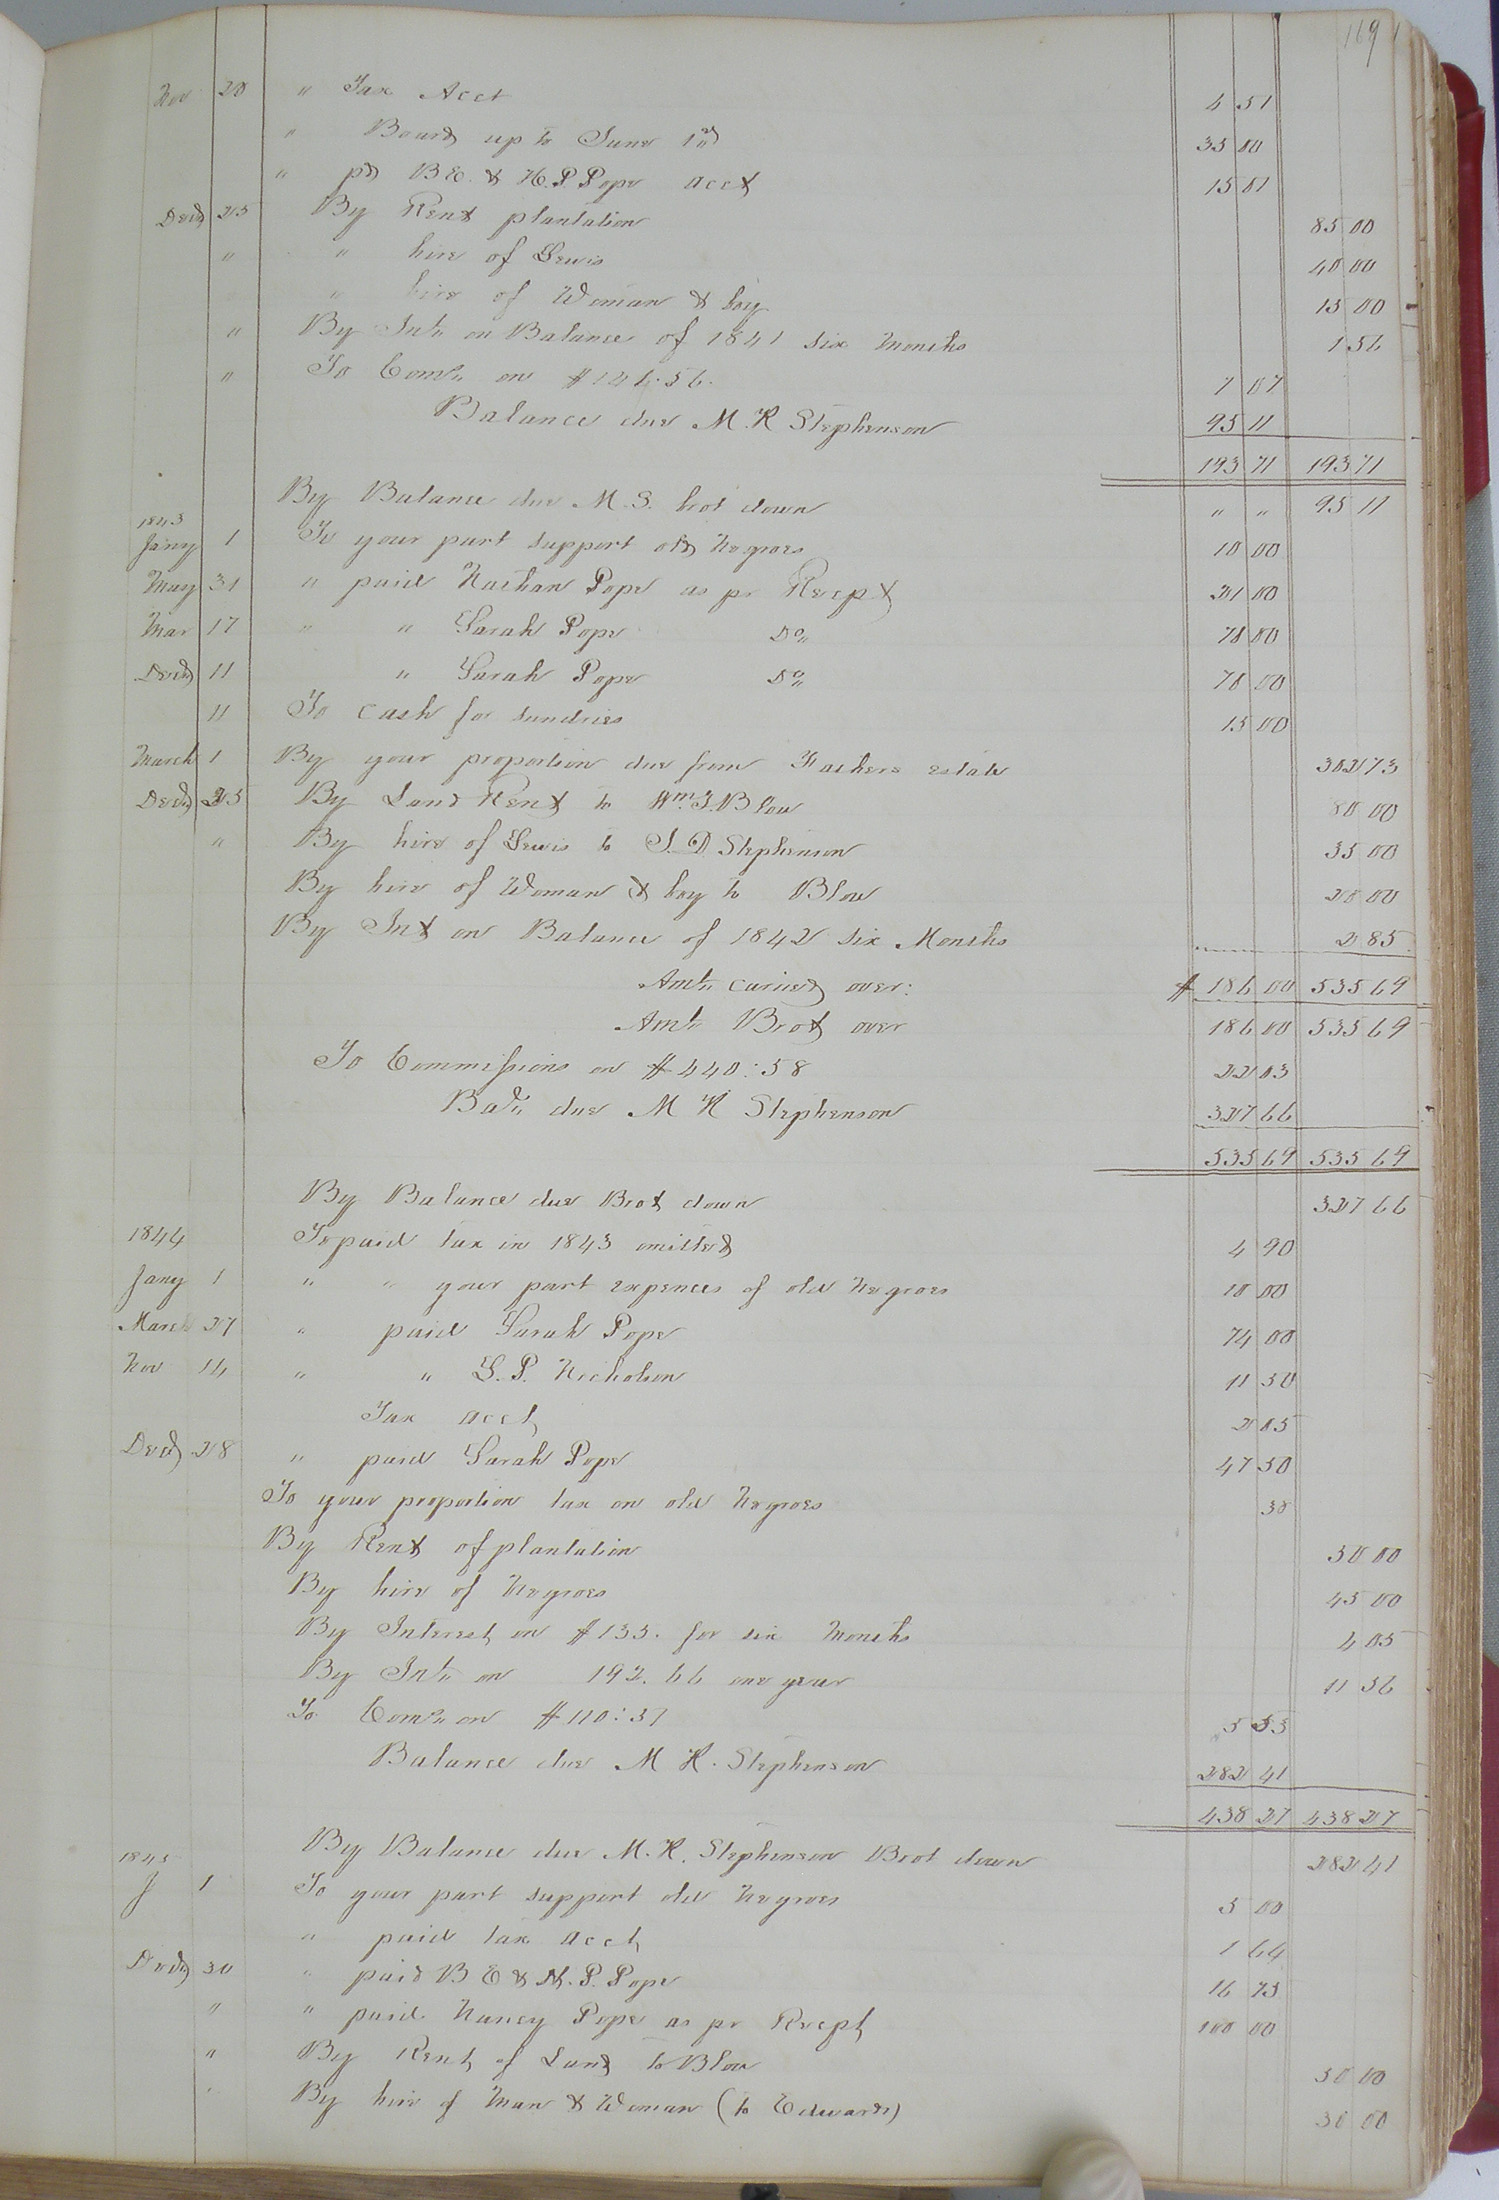 169
Nov 20 " Tax Acct 4 51
" Board up to June 1st 35 00
" pd B E. & N. P. Pope acct 15 01
Decr 25 By Rent plantation 85 00
" " hire of Lewis 40 00
" hire of Woman & boy 15 00
" By Intr on Balance of 1841 six Months 1 56
" To Comn on $141.56. 7 07
Balance due M. R Stephenson 95 11
193 71 193 71
By Balance due M. S. brot down " " 95 11
1843
Jany 1 To your part support old Negroes 10 00
May 31 " paid Nathan Pope as pr Recpt 21 00
Mar 17 " " Sarah Pope Do 70 00
Decr 11 " Sarah Pope Do 70 00
11 To cash for sundries 15 00
March 1 By your proportion due from Fathers estate 302 73
Decr 25 By Land Rent to Wm. J. Blow 80 00
" By hire of Lewis to J. D Stephenson 35 00
By hire of Woman & boy to Blow 20 00
By Int on Balance of 1842 six Months 2 85
Amt carried over: $ 186 00 535 69
Amt Brot over 186 00 535 69
To Commissions on $440:58 22 03
Bal due M R Stephenson 327 66
535 69 535 69
By Balance due Brot down 327 66
1844 To paid tax in 1843 omitted 4 90
Jany 1 " " your part expences of old Negroes 10 00
March 27 " paid Sarah Pope 74 00
Nov 14 " " G. P. Nicholson 11 50
Tax acct 2 05
Decr 28 " paid Sarah Pope 47 50
To your proportion tax on old Negroes 38
By Rent of plantation 50 00
By hire of Negroes 45 00
By Interest on $135. for six Months 4 05
By Int on 192.66 one year 11 56
To Comn on $110:37 5 53
Balance due M R. Stephenson 282 41
438 27 438 27
By Balance due M. R. Stephenson Brot down 282 41
1845
J 1 To your part support old Negroes 5 00
" paid tax acct 1 64
Decr 30 " paid B E & N. P. Pope 16 75
" " paid Nancy Pope as pr Recpt 100 00
" By Rent of Land to Blow 50 00
By hire of Man & Woman (to Edwards) 30 00